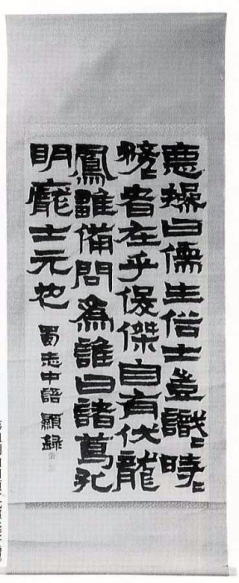 悳操曰儒生俗士豈識〻時〻
務〻者在乎俊傑自有伏龍
鳳雛備問為誰曰諸葛孔
明龐士元也
蜀志中語 顯錄